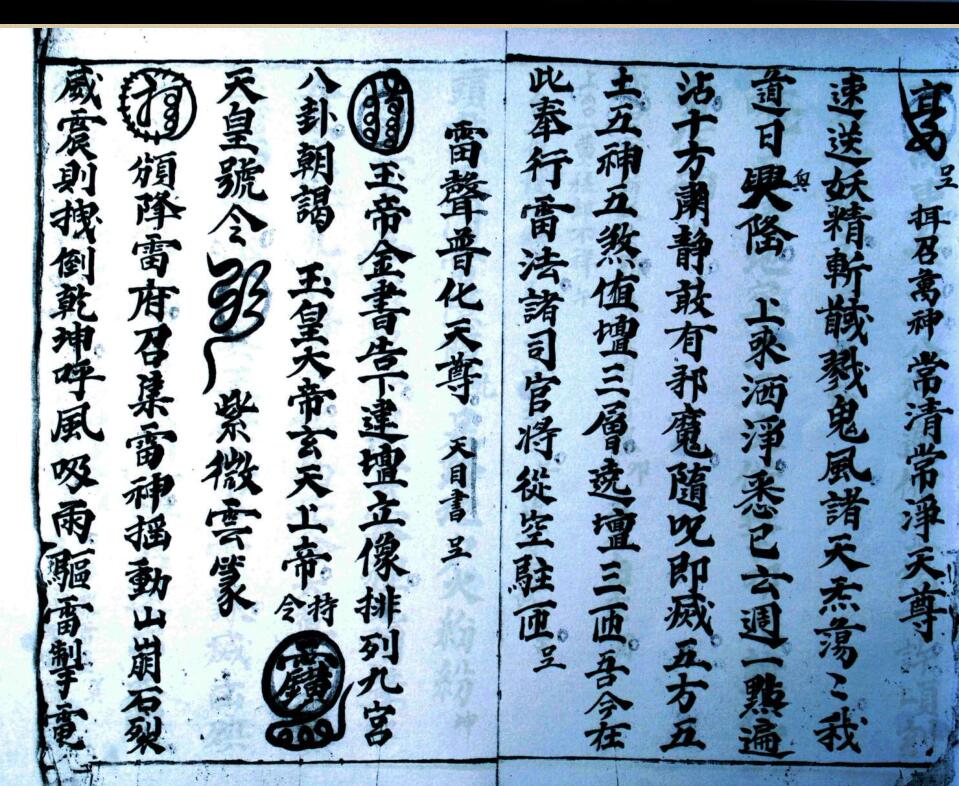 呈 揖召萬神 常清常淨天尊
速送妖精斬馘戮鬼風諸天炁蕩〻我
道日興隆 與 上來洒淨悉已云週一點遍
沾十方肅靜敢有邪魔隨呪即滅五方五
土五神五煞值壇三層遶壇三匝吾今在
此奉行雷法諸司官將從空駐匝 呈
雷聲普化天尊 天目書 呈
玉帝金書告下建壇立像排列九宮
八卦朝謁 玉皇大帝玄天上帝 特令
天皇號令 紫微雲篆
頒降雷府召集雷神搖動山崩石裂
威震則拽倒乾坤呼風吸雨驅雷掣電